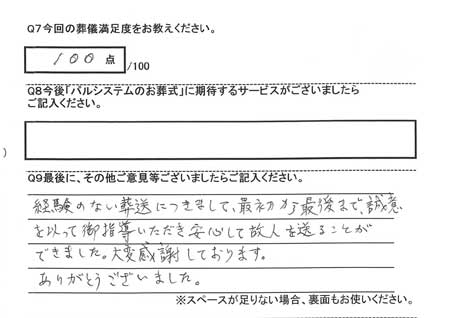 Q7今回の葬儀満足度をお教えください。
100 点 /100
Q8今後「パルシステムのお葬式」に期待するサービスがございましたら
ご記入ください。
)
Q9最後に、その他ご意見等ございましたらご記入ください。
経験のない葬送につきまして、最初から最後まで、誠意
を以って御指導いただき安心して故人を送ることが
できました。大変感謝しております。
ありがとうございました。
※スペースが足りない場合、裏面もお使いください。